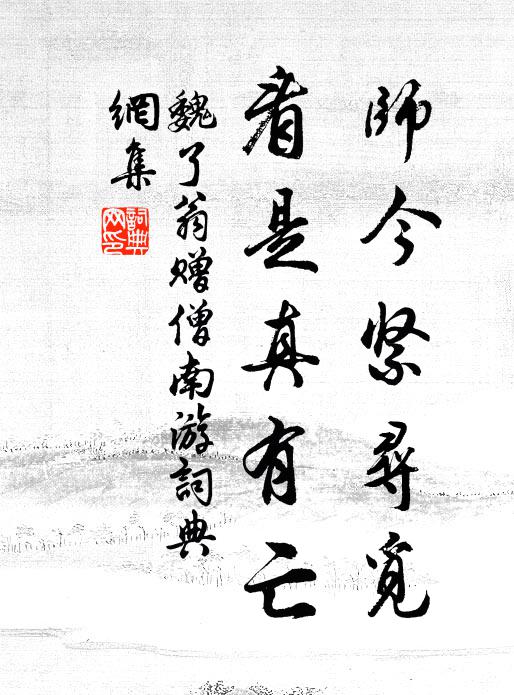 師今紧尋覓
看是真有亡
魏了翁贈僧南游詞典
網集
詞典網印